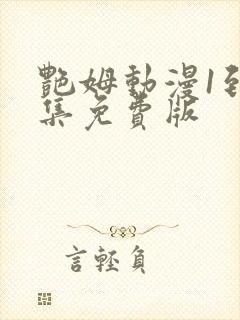 艷姆動漫1到
集免費版
言輕負